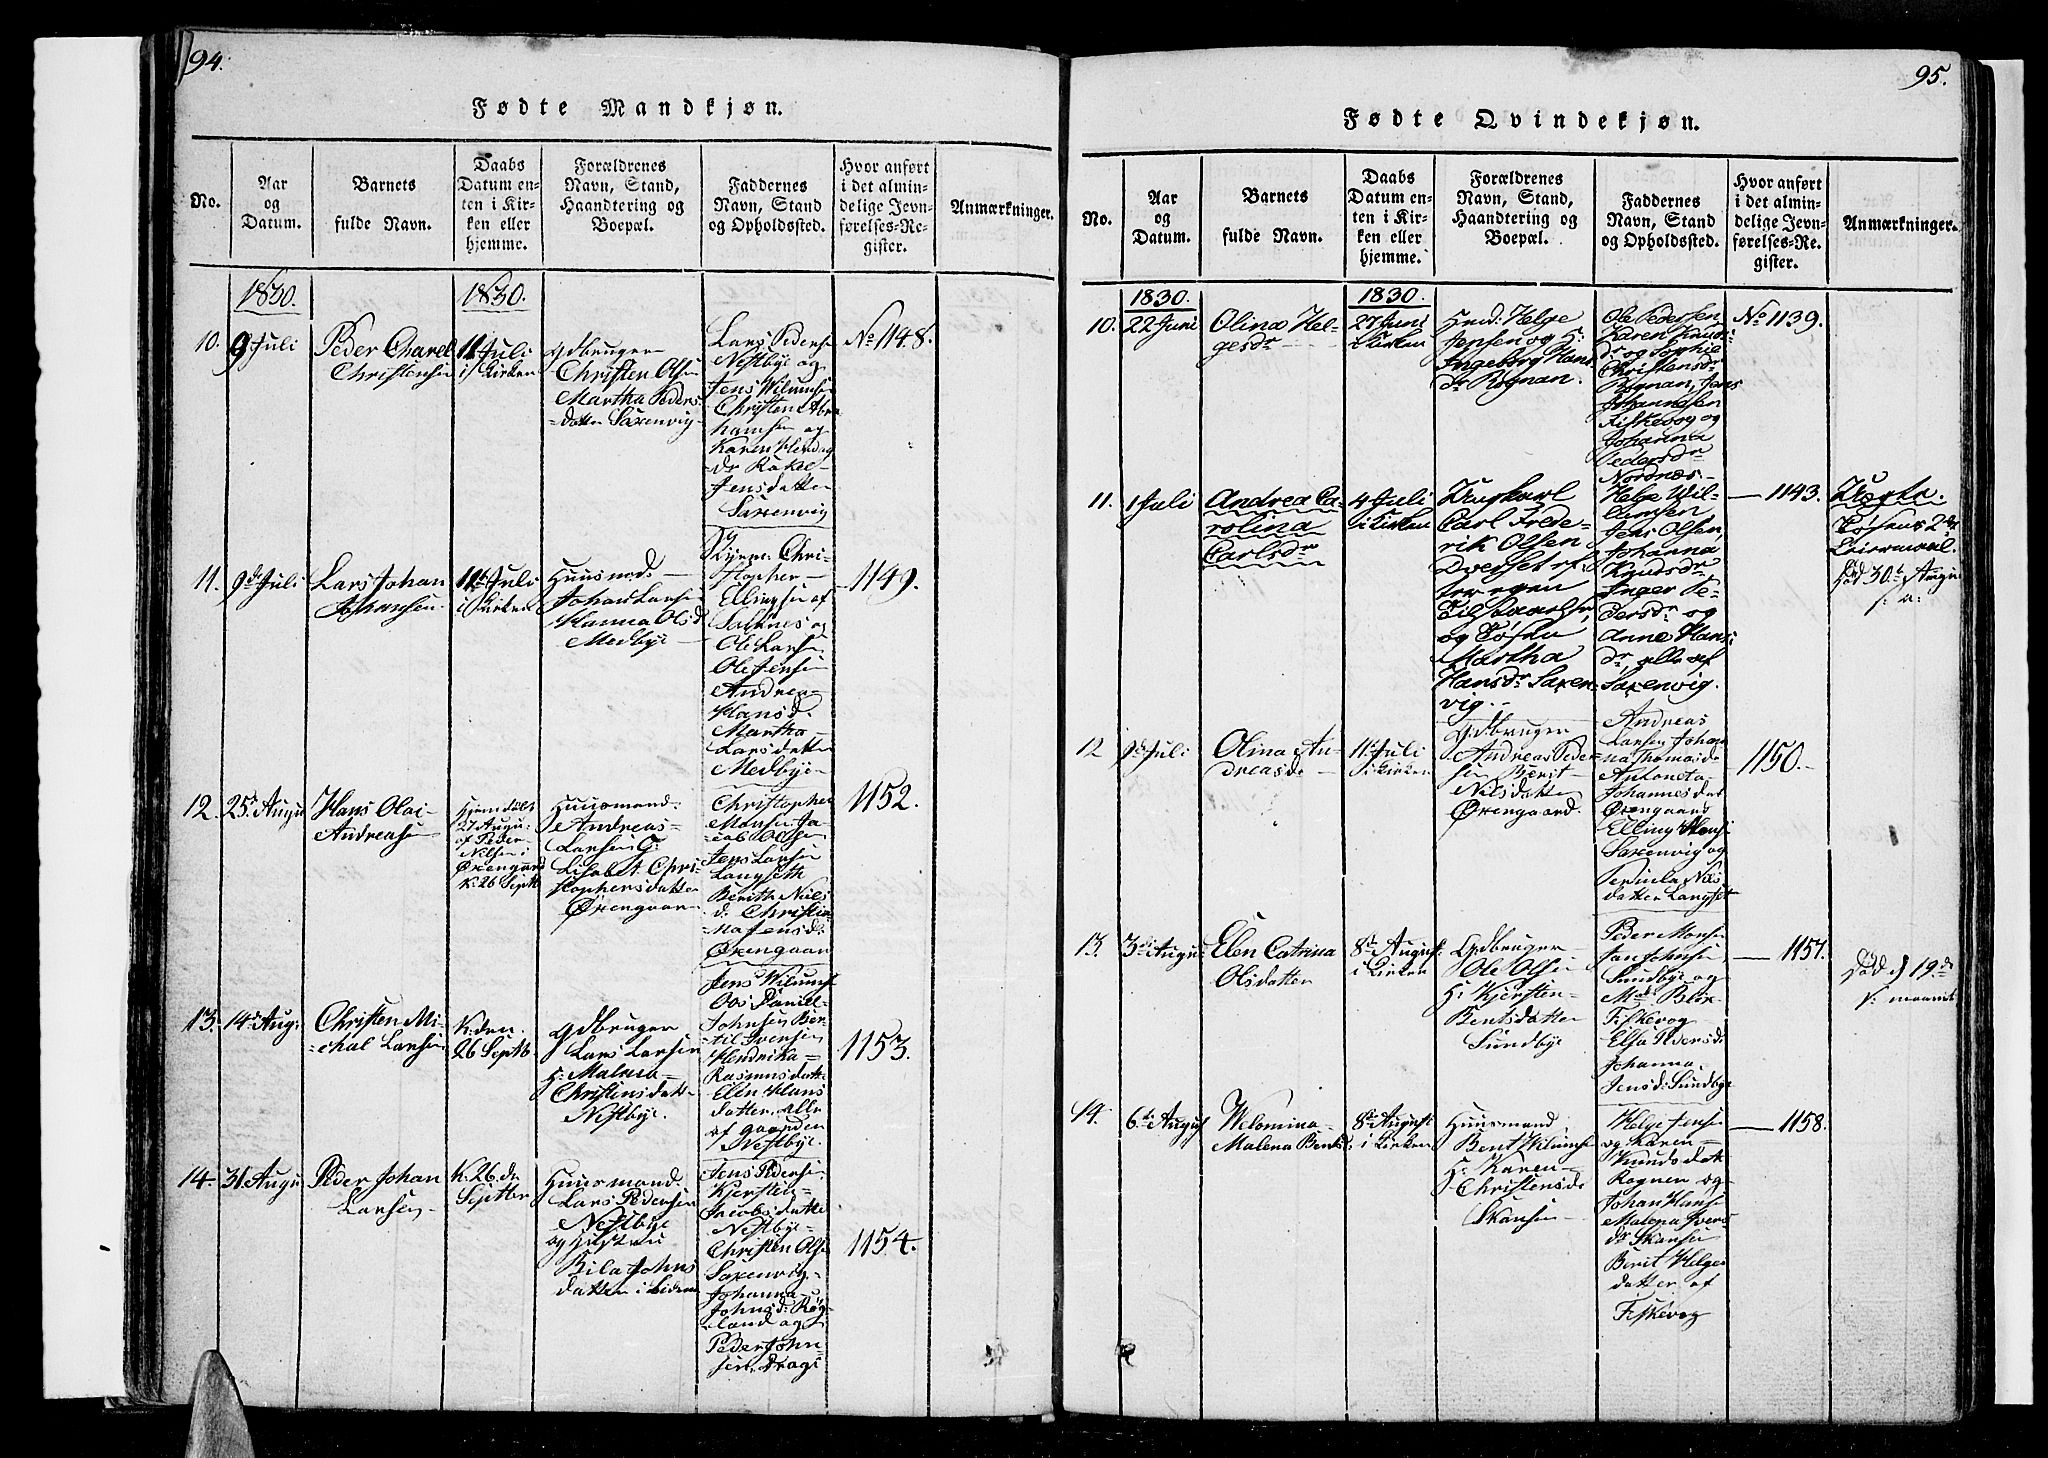 94.
Fødte Mandkjøn.
No.
Aar
og
Datum.
Barnets
fulde Navn.
Daabs
Datum en-
ten i Kir-
ken eller
hjemme.
Forældrenes
Navn, Stand,
Haandtering og
Boepæl.
Faddernes
Navn, Stand
og Opholdssted.
Hvor anført
i det almin-
delige Jevn-
førelses-Re-
gister.
Anmærkninger.
1830.
1830.
10.
9 Juli
Peder Charel
Christensen
11 Juli
i Kirken
Gdbruger
Christen Olsen
Martha Peders-
datter Saxenvig
Lars Peders
Nestbye og
Jens Wilumsen
Christen Abra
hamsen og
Karen Hendag
dr Rakel
Jensdatter
Saxenvig
No 1148.
11.
9de Juli
Lars Johan
Johansen
11te Juli
i Kirken
Huusmd:
Johan Larsen
Hanna Olsd
Medbye
Chri-
stopher
Ellingsen af
Saxnes og
Ole Larsen
Ole Jensen
Andrea
Hansd.
Martha
Larsdatter
Medbye
1149.
12.
25de Augu
Hans Olai
Andreasen
Hjemdøbt
27 Augu:
af Peder
Nilsen i
Øxengaard
K: 26 Septb
Huusmand:
Andreas
Larsen G:
Lisabet Chri-
stophersdatter
Øxengaar
Christopher
Monsen Ja-
cob Olsen
Jens Larsen
Langseth
Berith Niels
d: Christia-
na Jensd:
Øxengaar
1152.
13.
14de Aug:
Christen Mi-
chal Larsen
K: den
26 Septb
Gdbruger
Lars Larsen
H: Malena
Christensdatt-
Nestbye.
Jens Wilums
Daniel
Johnsen Ber-
til Ivensen
Hendrika
Rasmusdatt-
Elen Hans
datter alle
af gaarden
Nestbye.
1153.
14.
31 Augu
Peder Johan
Larsen
K: 26. de
Septbr
Huusmand.
Lars Pedersen
Nestbye
og Hustru
Bila Johns
datter i
Jens Pedersen
Kjersten
Jacobsdatte
Nestbye
Christen Olse
Saxenvig
Johanna
Johnsd: Røg-
land og
Peder John
sen Dragi
1154.
95.
Fødte Qvindekjøn.
No.
Aar
og
Datum.
Barnets
fulde Navn.
Daabs
Datum en-
ten i Kir-
ken eller
hjemme.
Forældrenes
Navn, Stand,
Haandtering og
Boepæl.
Faddernes
Navn, Stand
og Opholdssted.
Hvor anført
i det almin-
delige Jevn-
førelses-Re-
gister.
Anmærkninger.
1830.
1830.
10.
22 Juni
Olina Hel-
gesdr
27 Juni
i Kirken
Hmd: Helge
Jensen og H:
Ingeborg Hans
dr Rognan.
Ole Pedersen
Karen Knuds
dr og Sophie
Christensdr
Rognan, Jens
Johannesen
Fiskevog og
Johanna
Pedersdr
Nordnæs.
No 1139.
11.
1 Juli
Andrea Ca-
rolina
Carlsdr
4 Juli
i Kirken
Ungkarl
Carl Frede-
rik Olsen
Dverset
og Tøsen
Martha
Hansdr Saxen
vig.
Helge Wil-
lumsen
Jens Olsen,
Johanna
Knudsdr
Inger Pe-
dersdr og
Anne Hans
dr, alle af
Saxenvig.
1143.
Uægte.
Tøsens 2det
Leiermaal.
død 30te Augu
s: a:
12
9de Juli
Olina An-
dreasd
11te Juli
i Kirken
Gdbruger
Andreas Peder
sen Berit
Nilsdatter
Øxengaard.
Andreas
Larsen Johan
na Thomasd
Antoneta
Johannesdat
Øxengaard
Elling Hans
Saxenvig og
Pernela Nils
datter Langset
1150.
13.
3die Augu
Elen Catrina
Olsdatter
8de August:
i Kirken
Gdbruger
Ole Olsen
H: Kjersten
Bentsdatter
Sundbye
Peder Monsen
Jan Johnsen
Sundbye og
Mad: Blix
Fiskevog
Elsa Pedersd
Johanna
Jensd: Sundbye
1157.
død d 19de
14.
6te Augu
Welomina
Malena Bents
8de August
i Kirken
Huusmand
Bent Wilumse
H: Karen
Christensd
Skansen
Helge Jense
og Karen
Knudsdat
Rognan og
Johan Hanse
Malena Ivers
dr Skansen
Berit Helges
datter af
Fiskevog
1158.